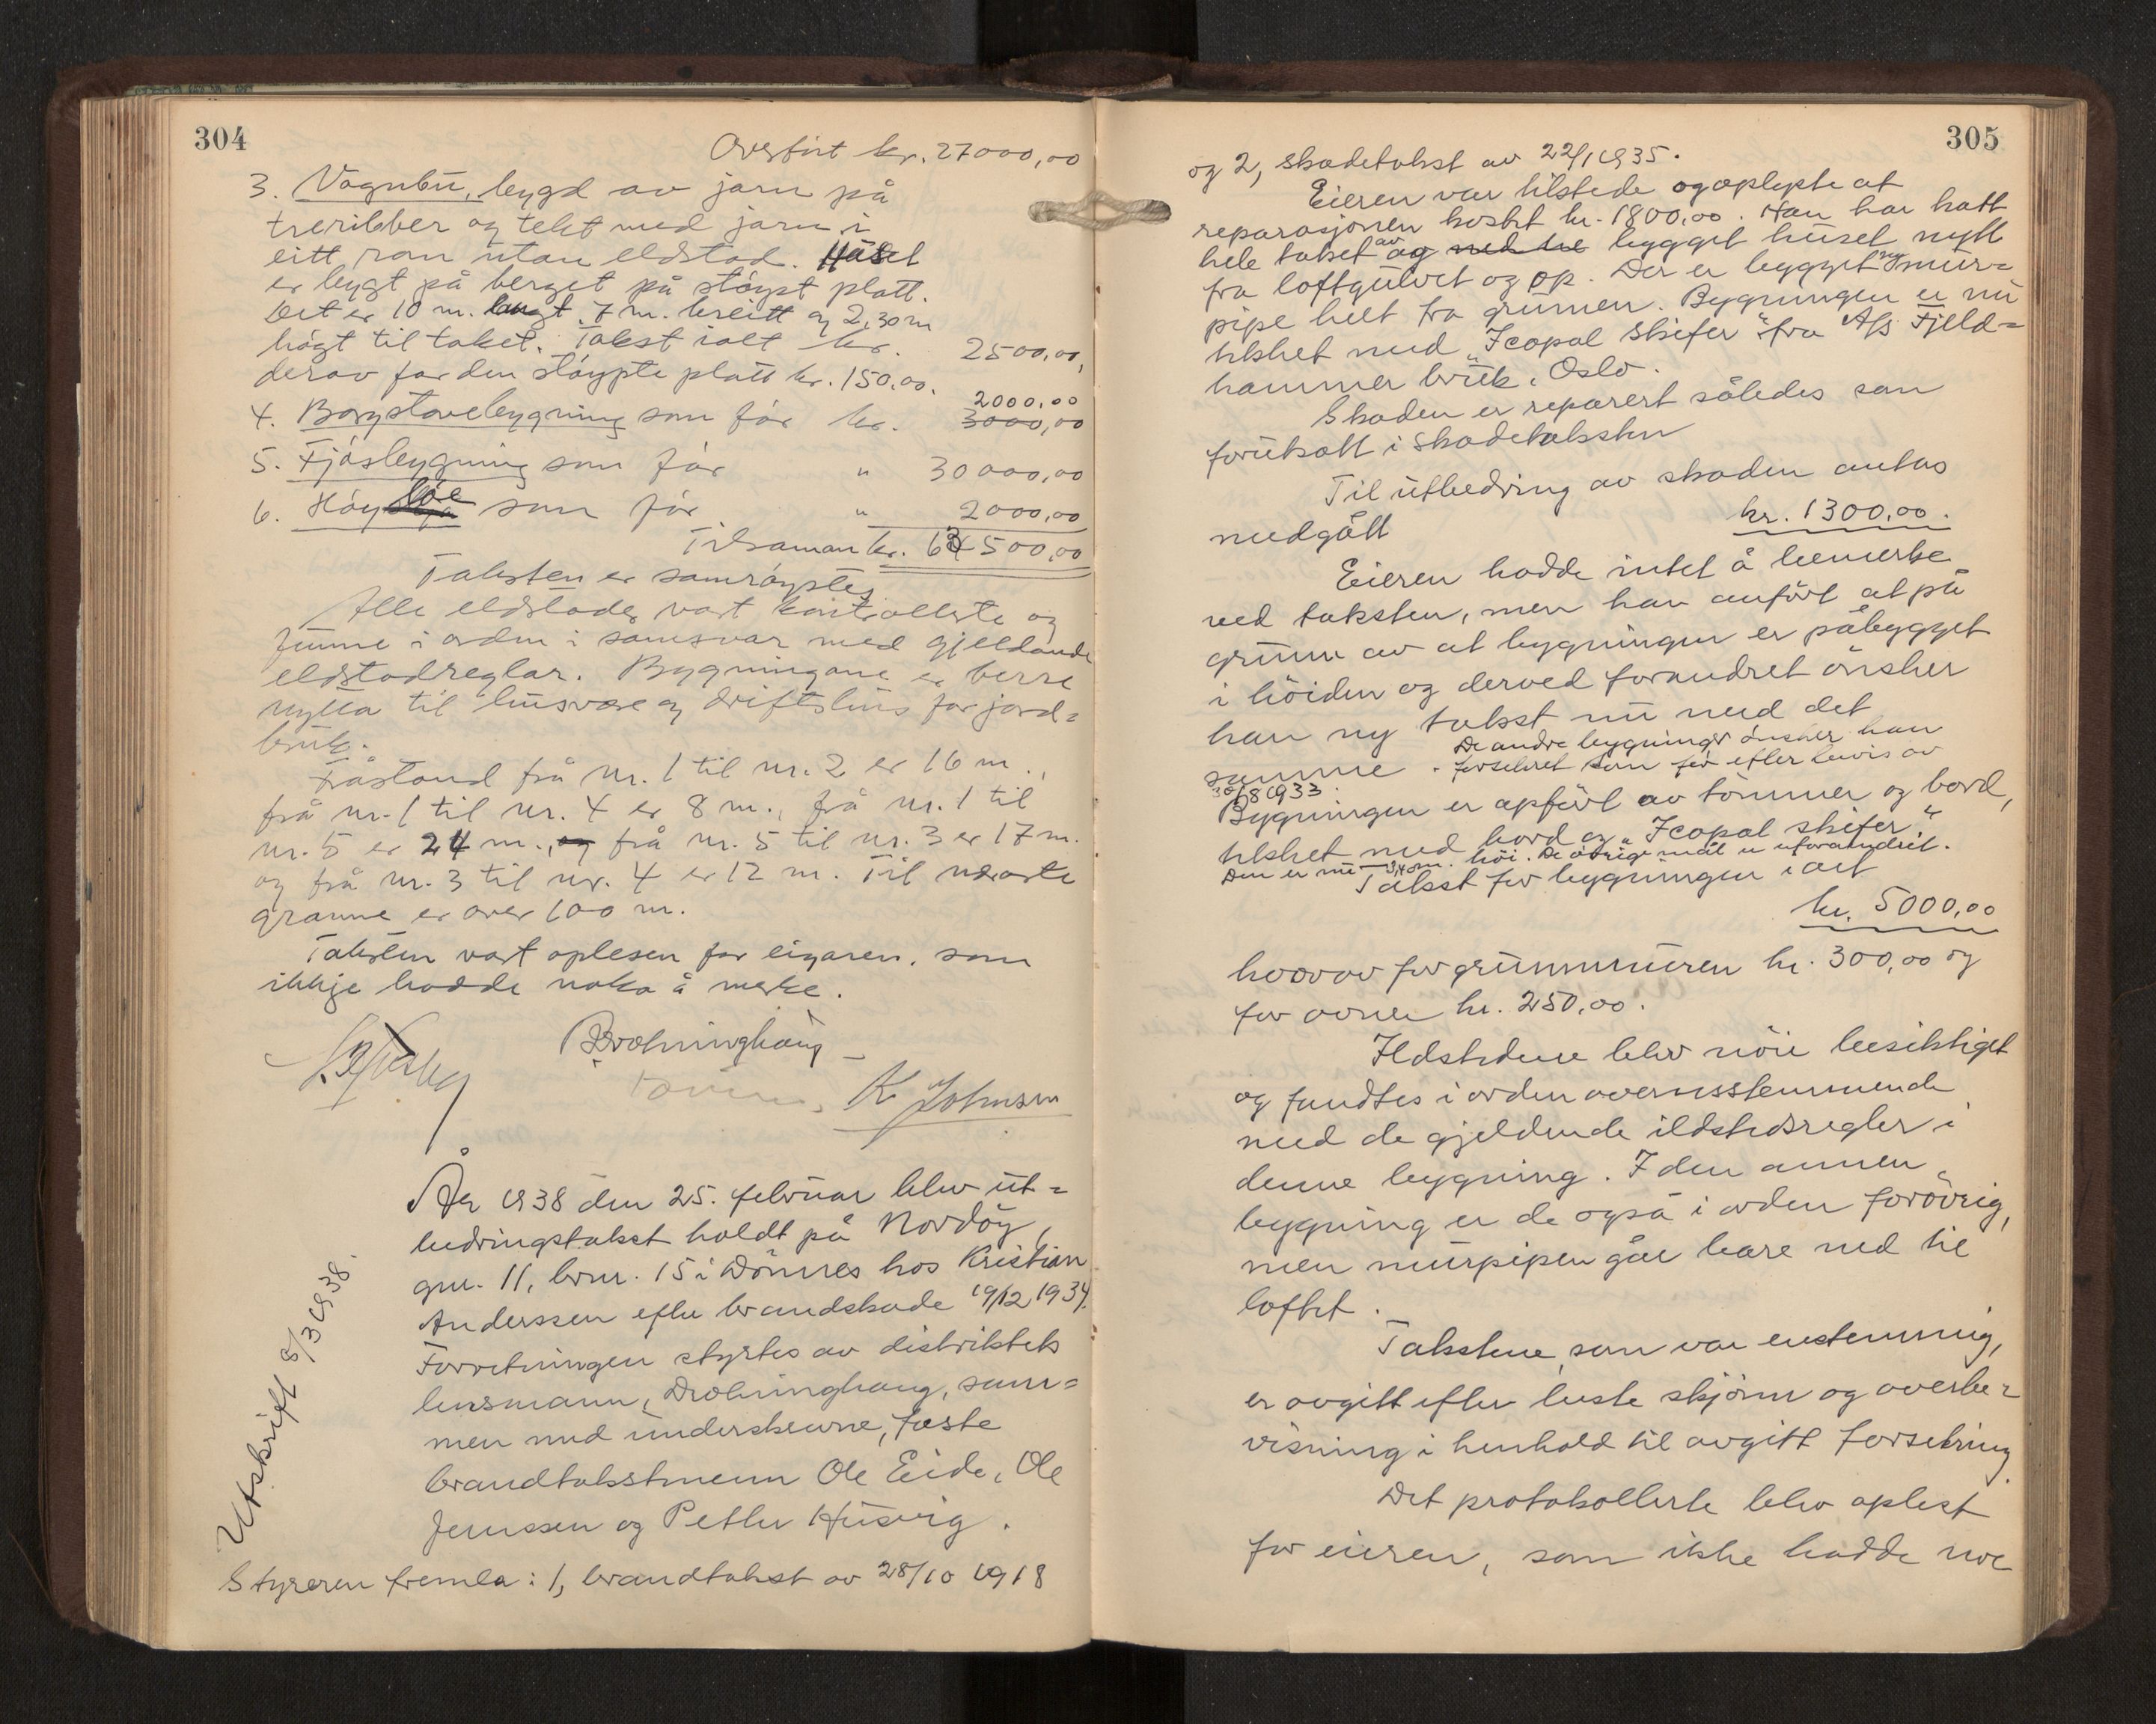 304
Overført kr. 27000,00
3. Vognbu, bygd av jarn på
treribber og tekt med jarn i
eitt rom utan eldstad. Huset
er bygt på berget på støypt platt.
Det er 10 m. langt, 7 m. breitt og 2,30 m
høgt til taket. Takst ialt kr. 2500,00,
derav for den støypte platt kr. 150,00.
4. Borgstovebygning som før kr. 2000,00 3000,00
5. Fjøsbygning som før " 30000,00
6. Høyløe som før " 2000,00
Tilsaman kr. 63500,00
Taksten er samrøystes
Alle eldstader vart kontrollerte og
funne i orden i samsvar med gjeldande
eldstadreglar. Bygningane er berre
nytta til husvære og driftshus for jord=
bruk.
Fråstand frå nr. 1 til nr. 2 er 16 m.,
frå nr. 1 til nr. 4 er 8 m., frå nr. 1 til
nr. 5 er 24 m., og frå nr. 5 til nr. 3 er 17 m.
og frå nr. 3 til nr. 4 er 12 m. Til næraste
granne er over 100 m.
Taksten vart oplesen for eigaren, som
ikkje hadde noko å merke.
Drolninghaug
K Johnsen
År 1938 den 25. februar blev ut=
bedringstakst holdt på Nordøy,
gnr. 11, brnr. 15 i Dønnes hos Kristian
Anderssen efter brandskade 19/12 1934.
Forretningen styrtes av distriktets
lensmann, Drolninghaug, sam=
men med underskrevne, faste
brandtakstmenn Ole Eide, Ole
Jenssen og Petter Husvig.
Styreren fremla: 1, brandtakst av 28/10 1918
Utskrift 8/3 1938.
305
og 2, skadetakst av 22/1 1935.
Eieren var tilstede og oplyste at
reparasjonen kostet kr. 1800,00. Han har hatt
hele taket av og ned til bygget huset nytt
fra loftgulvet og op. Der er bygget ny mur=
pipe helt fra grunnen. Bygningen er nu
tekket med "Icopal skifer" fra A/S Fjeld=
hammer bruk, Oslo.
Skaden er reparert således som
forutsatt i skadetaksten
Til utbedring av skaden antas
medgått kr. 1300,00.
Eieren hadde intet å bemerke
ved taksten, men han anført at på
grunn av at bygningen er påbygget
i høiden og derved forandret ønsker
han ny takst nu med det
samme. De andre bygninger ønsker han
forsikret som før efter bevis av
30/8 1933.
Bygningen er opført av tømmer og bord,
tekket med bord og "Icopal skifer."
Den er nu m. høi. De øvrige mål er uforandret.
Takst for bygningen i alt
kr. 5000,00
hvorav for grunnmuren kr. 300,00 og
for ovner kr. 250,00.
Ildstedene blev nøie besiktiget
og fundtes i orden overensstemmende
med de gjeldende ildstedsregler i
denne bygning. I den annen
bygning er de også i orden forøvrig,
men murpipen går bare ned til
loftet.
Takstene, som var enstemmig,
er avgitt efter beste skjønn og overbe=
visning i henhold til avgitt forsikring.
Det protokollerte blev oplest
for eieren, som ikke hadde noe